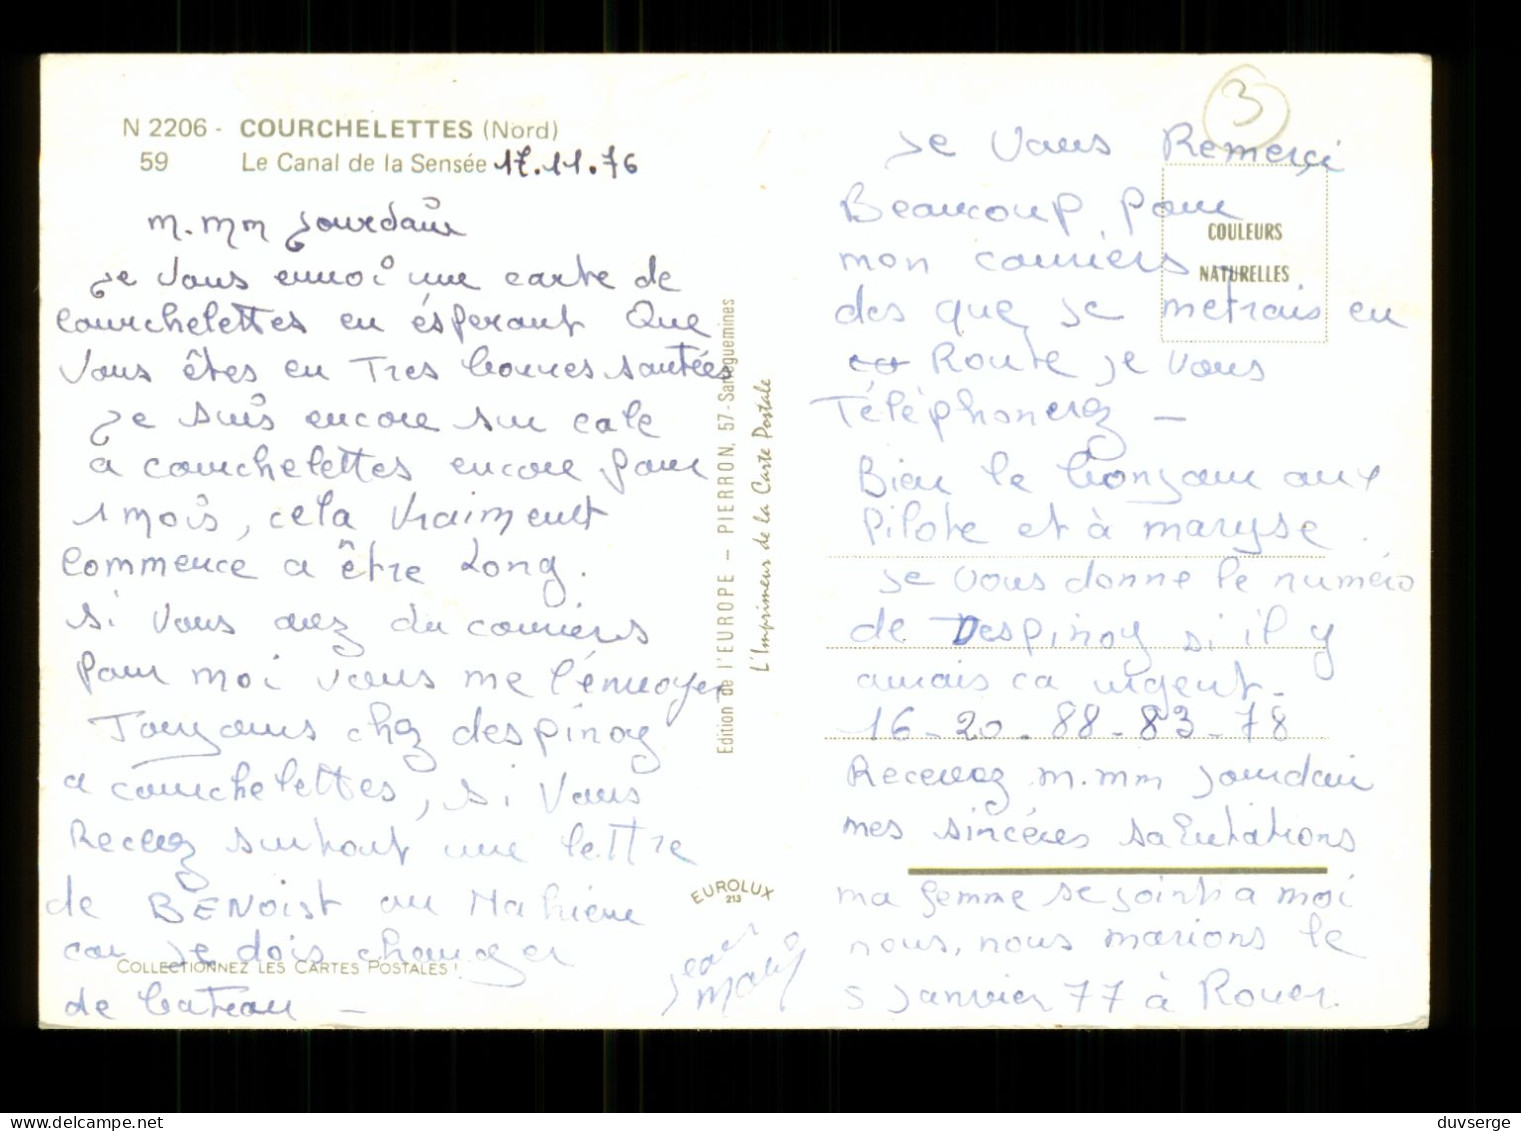 N 2206 - COURCHELETTES (Nord)
59 Le Canal de la Sensée 17.11.76
m. mm Jourdain
Je Vous envoi une carte de
Courchelettes en ésperant Que
Vous êtes en Tres bonnes santées
Je suis encore sur cale
a courchelettes encore pour
1 mois, cela Vraiment
Commence a être Long.
si Vous avez du courriers
Pour moi vous me l'énvoyer
Toujours chez despinoy
a courchelettes, si Vous
Recevez surtout une lettre
de BENOIST ou Mahieu
car je dois changer
COLLECTIONNEZ LES CARTES POSTALES !
de bateau —
Edition de l'EUROPE — PIERRON, 57-Sarreguemines
L'Imprimeur de la Carte Postale
EUROLUX
213
Jean
Marie
3
Je Vous Remerçi
Beaucoup pour
COULEURS
mon courriers
NATURELLES
des que je metrais en
Route je vous
Téléphonerez —
Bien le bonjour aux
Pilote et à maryse.
Je vous donne le numéro
de Despinoy si il y
aurais ca urgent -
16 - 20 - 88 - 83 - 78
Recevez m. mm Jourdain
mes sincères salutations
ma femme se joint a moi
nous, nous marions le
5 Janvier 77 à Rouen.
duvserge
delcampe.net